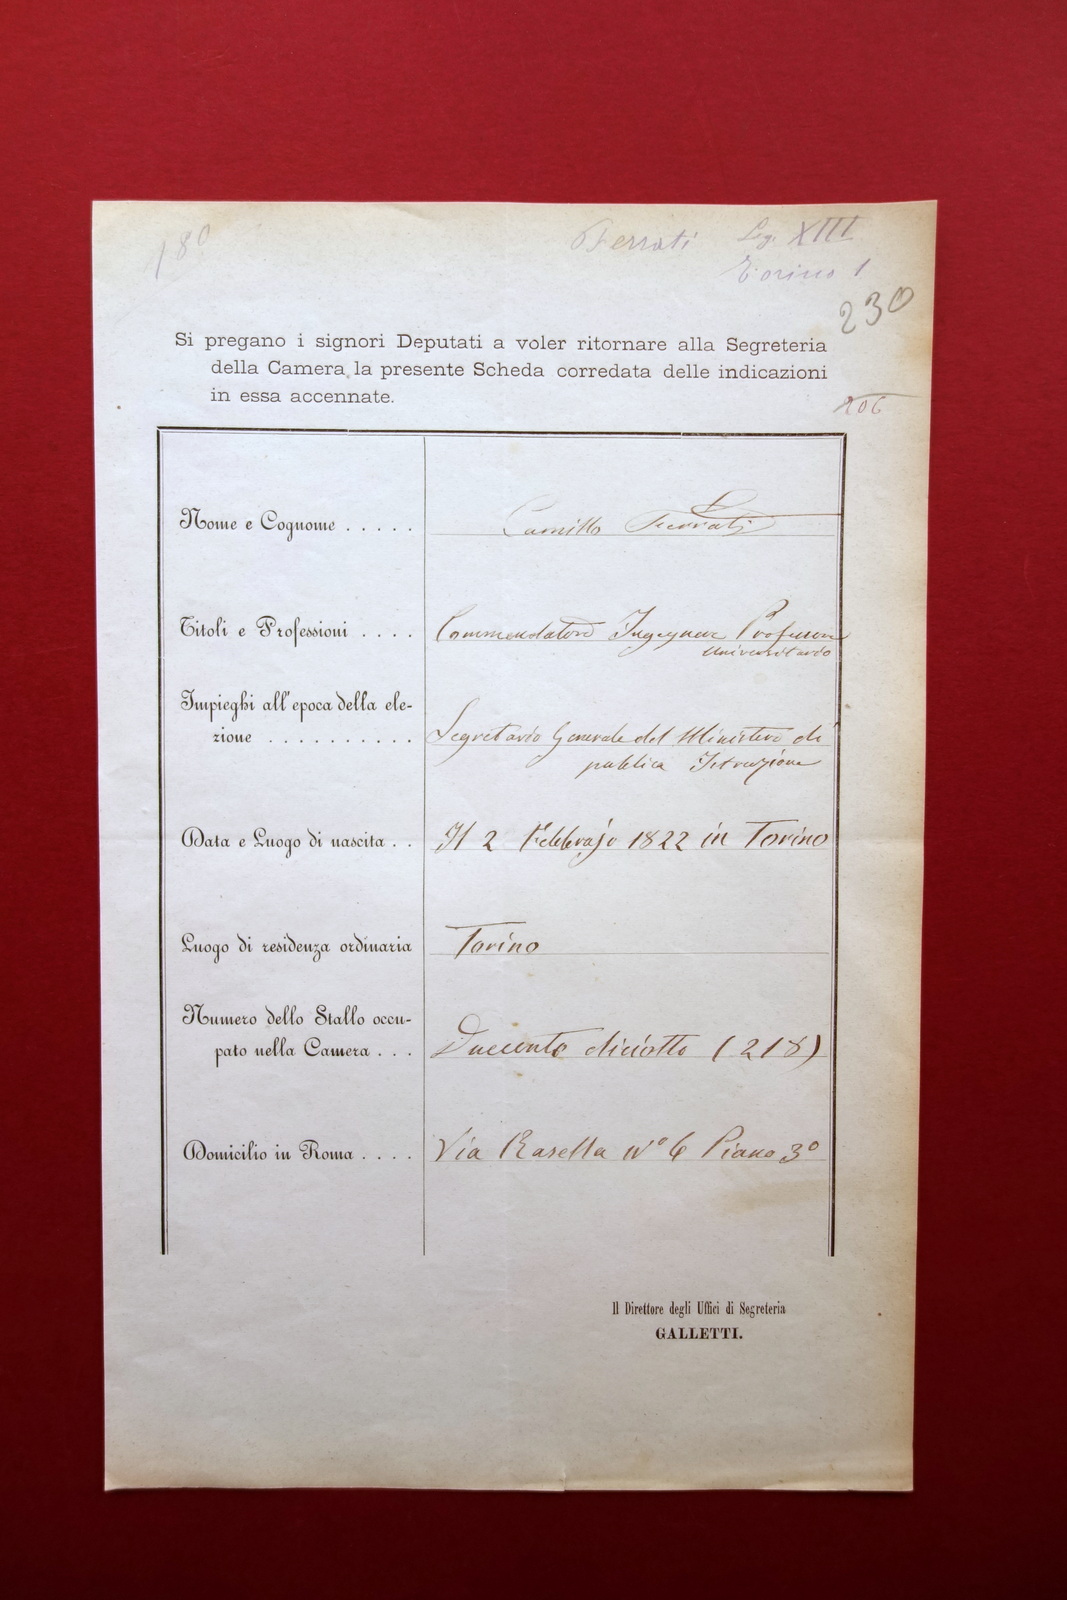 180
Ferrati Leg. XIII
Torino 1
230
Si pregano i signori Deputati a voler ritornare alla Segreteria
della Camera la presente Scheda corredata delle indicazioni
in essa accennate.
206
Nome e Cognome . . . . . Camillo Ferrati
Titoli e Professioni . . . . Commendatore Ingegnere Professore
universitario
Impieghi all'epoca della ele-
zione . . . . . . . . . . Segretario Generale del Ministero di
pubblica Istruzione
Data e Luogo di nascita . . Il 2 Febbrajo 1822 in Torino
Luogo di residenza ordinaria Torino
Numero dello Stallo occu-
pato nella Camera . . . Duecento diciotto (218)
Domicilio in Roma . . . . Via Rasella N° 6 Piano 3°
Il Direttore degli Uffici di Segreteria
GALLETTI.